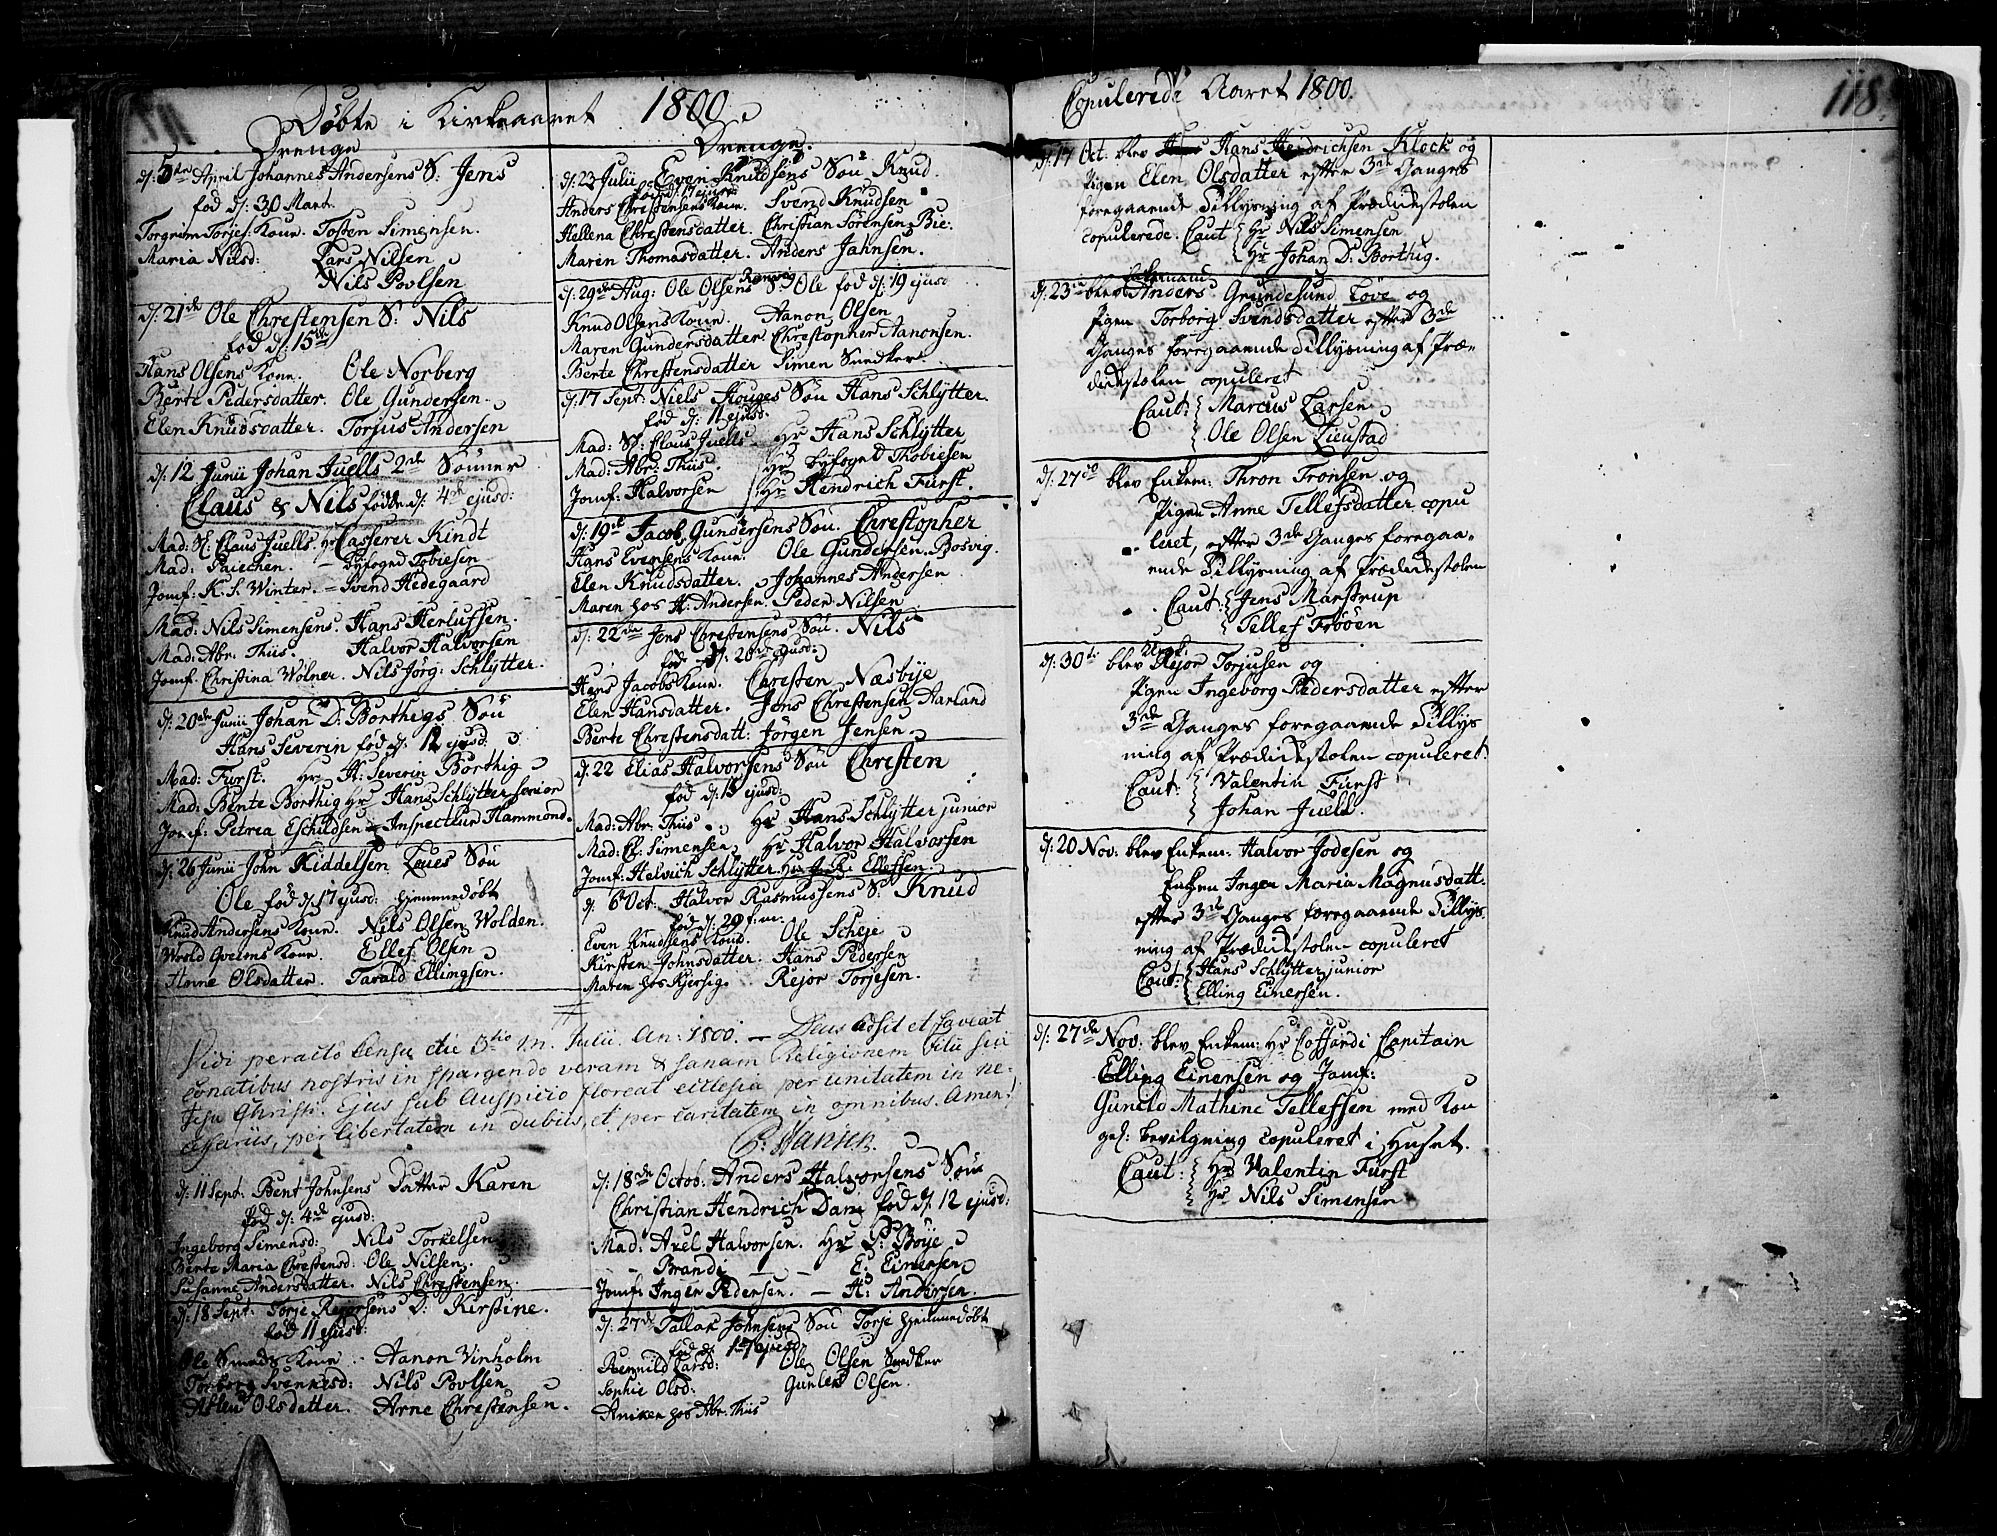 Døbte i Kirkeaaret 1800
Drenge
d: 5te April Johannes Andersens S: Jens
fød d: 30 Mart.
Torgrim Torjes: Kone. Tosten Simensen.
Maria Nilsd: Lars Nilsen
Nils Povlsen
d: 21de Ole Christensen S: Nils
fød d: 15de
Hans Olsens Kone. Ole Norberg
Berte Pedersdatter. Ole Gundersen.
Elen Knudsdatter. Torjus Andersen
d: 12 Junii Johan Juells 2de Sønner
Claus & Nils fødde d: 4de ejusd:
Mad: Sl: Claus Juells. Hr Casserer Kindt
Mad: — Byfoged Tobiesen
Jomf: K. S. Winter. — Svend Hedegaard
Mad: Nils Simensens. Hans Herlufsen.
Mad: Abr: Thiis. Halvor Halvorsen
Jomf: Christina Wølner. Nils Jørg: Schlytter.
d: 20de Junii Johan D: Borthigs Søn
Hans Severin fød d: 12 ejusd:
Mad: Furst. Hr H: Severin Borthig
Mad: Bente Borthig Hr Hans Schlytter senior
Jomf: Petrea Eschildsen — Inspecteur Hammond.
d: 26 Junii John Kiddelsen Søn
Ole fød d: 17 ejusd: hjemmedøbt
Knud Andersens Kone. Nils Olsen Wolden.
Kone. Ellef Olsen
Anne Olsdatter. Tarald Ellingsen.
Drenge.
d: 23 Julii Even Knudsens Søn Knud.
fød d: 17 ejusd
Anders Christensens Kone. Svend Knudsen
Hellena Christensdatter. Christian Sørensen Bie.
Maren Thomasdatter. Anders Jahnsen.
d: 29de Aug: Ole Olsens S. Ole fød d: 19 ejusd
Knud Olsens Kone. Aanon Olsen
Maren Gundersdatter Christopher Aanonsen.
Berte Christensdatter Simen Snedker.
d: 17 Sept: Niels Kouges Søn Hans Schlytter.
fød d: 11 ejusd:
Mad: Sl: Claus Juells Hr Hans Schlytter
Mad: Abr: Thiis. Hr Byfoged Thobiesen
Jomf: Halvorsen Hr Hendrich Furst.
d: 19de Jacob Gundersens Søn. Christopher
Hans Evensens Kone. Ole Gundersen. Bosvig.
Elen Knudsdatter. Johannes Andersen
Maren hos H: Andersen. Peder Nilsen
d: 22de Jens Christensens Søn. Nils
fød d: 20de ejusd:
Hans Jacobs Kone. Christen Næsbye
Elen Hansdatter. Jens Christensen Aarland
Berte Christensdatt: Jørgen Jensen
d: 22 Elias Halvorsens Søn Christen
fød d: 15 ejusd:
Mad: Abr: Thiis. Hr Hans Schlytter junior
Mad: Simensen Hr Halvor Halvorsen
Jomf: Helvich Schlytter. Hr Ellefsen.
d: 6 Oct: Halvor Rasmussens S: Knud
fød d: 29 f: m:
Even Knudsens Kone. Ole Scheje
Kirsten Johnsdatter. Hans Pedersen
Maren hos Kjersig. Rejor Torjesen.
Vidi peracto Censu die 5tio m. Julii. An: 1800. — Deus adsit et faveat
conatibus nostris in spargendo veram & sanam Religionem filii sui
Jesu Christi. Ejus sub Auspicio floreat ecclesia per unitatem in ne-
cessariis, per libertatem in dubiis, et per caritatem in omnibus. Amen!
P. Hansen.
d: 11 Sept. Bent Johnsens Datter Karen
fød d: 4de ejusd:
Ingeborg Simensd: Nils Torkelsen
Berte Maria Christensd: Ole Nilsen.
Susanne Andersdatter. Nils Christensen.
d: 18 Sept: Torje Rejorsens D: Kirstine.
fød 11 ejusd:
Ole Smeds Kone. Aanon Vinholm
Torborg Svennesd: Nils Povlsen
Olsdatter. Arne Christensen.
d: 18de Octob: Anders Halvorsens Søn
Christian Hendrich Dani fød d: 12 ejusd:
Mad: Axel Halvorsen. Hr P: Bøye
— Brandi — — E: Einersen
Jomf: Inger Pedersen. — H: Andersen.
d: 27de Tallak Johnsens Søn Torje hjemmedøbt
fød d: 17 ejusd
Larsd: Ole Olsen Snedker
Sophie Olsd: Gunder Olsen.
Aniken hos Abr: Thiis
Copulerede Aaret 1800.
118.
d: 17 Oct: blev Hans Hendrichsen Klock og
Pigen Elen Olsdatter efter 3de Ganges
foregaaende Tillysning af Prædikestolen
copulerede. Caut { Hr Nils Simensen.
Hr Johan D: Borthig.
d: 23de blev Enkemand Anders Grundesund Løve og
Pigen Torborg Svendsdatter efter 3de
Ganges foregaaende Tillysning af Præ-
dikestolen copuleret
Caut: { Marcus Larsen
Ole Olsen
d: 27de blev Enkem: Thron Tronsen og
Pigen Anne Tellefsdatter copu
leret, efter 3de Ganges foregaa-
ende Tillysning af Prædikestolen
Caut: { Jens Marstrup
Tellef Frøöen
d: 30te blev Ungk: Rejor Torjusen og
Pigen Ingeborg Pedersdatter efter
3de Ganges foregaaende Tillys
ning af Prædikestolen copuleret.
Caut: { Valentin Furst
Johan Juell.
d: 20 Nov: blev Enkem: Halvor Jodesen og
Enken Inger Maria Magnusdatt.
efter 3de Ganges foregaaende Tillys
ning af Prædikestolen copuleret
Caut: { Hans Schlytter junior
Elling Einersen.
d: 27de Nov: blev Enkem: Hr Coffardi Capitain
Elling Einersen og Jomf:
Gunild Mathine Tellefsen med Kon
gel: bevilgning copuleret i Huset.
Caut: { Hr Valentin Furst
Hr Nils Simensen